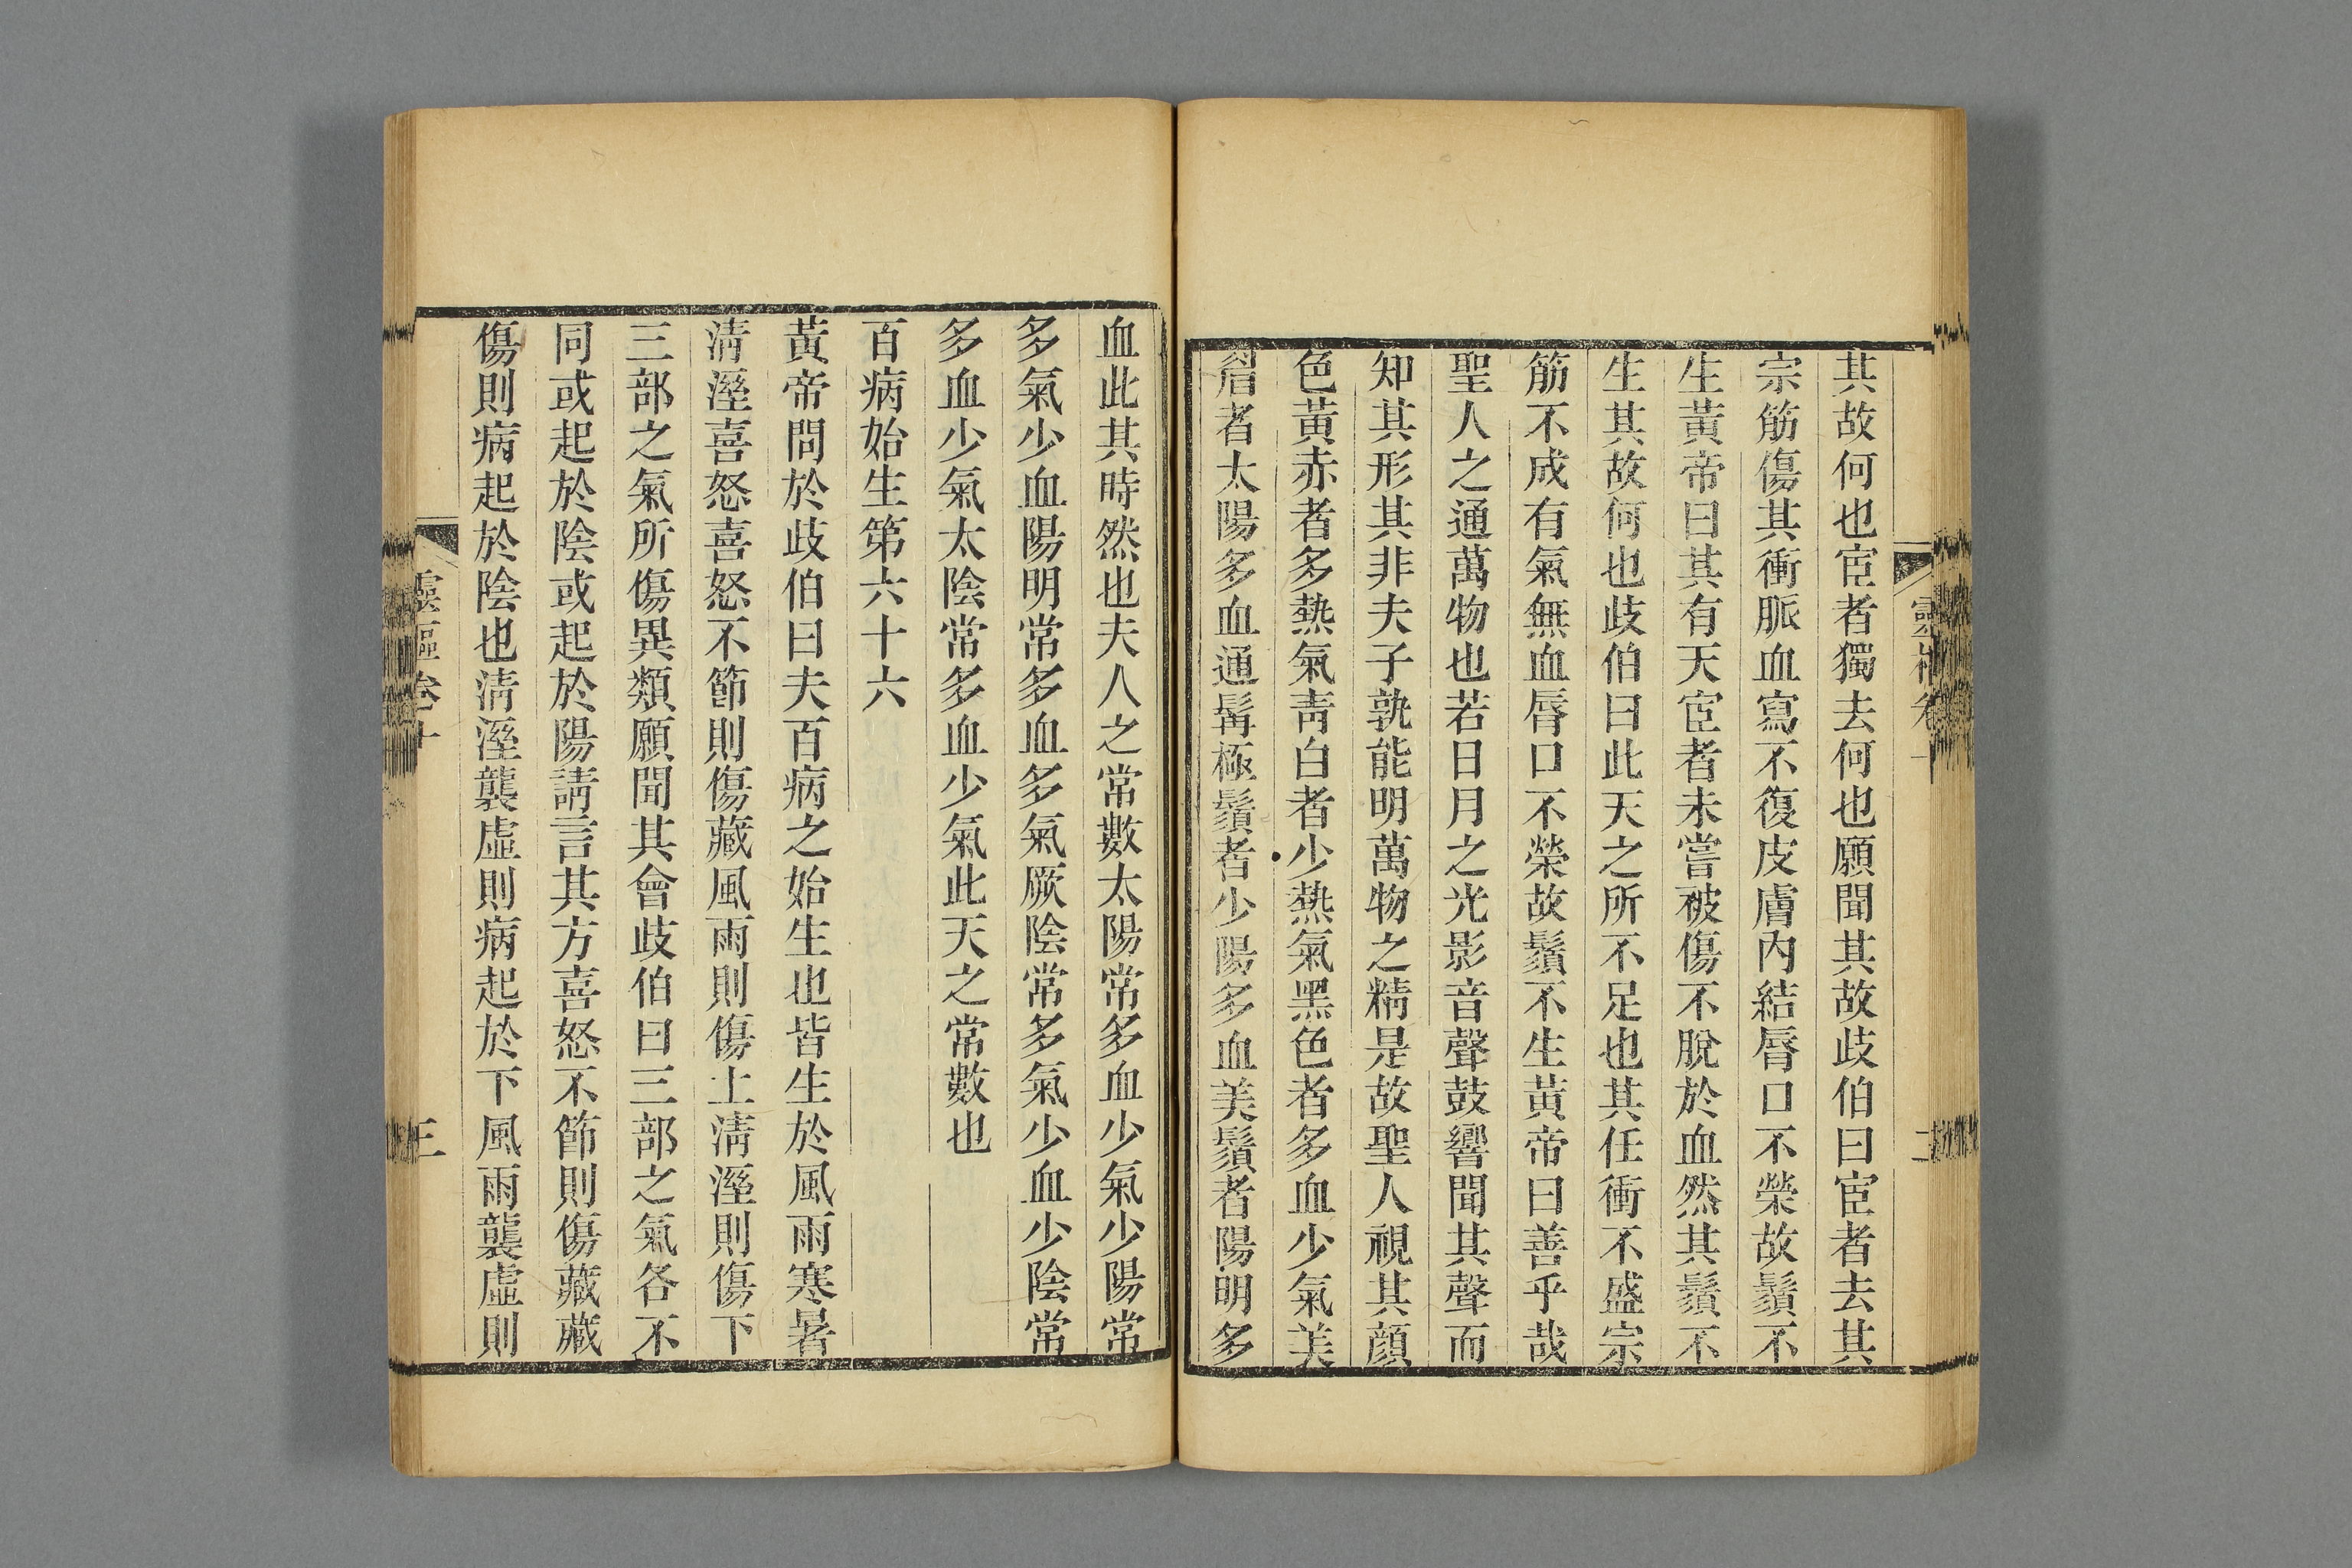 其故何也宦者獨去何也願聞其故歧伯曰宦者去其
宗筋傷其衝脈血寫不復皮膚內結唇口不榮故鬚不
生黃帝曰其有天宦者未嘗被傷不脫於血然其鬚不
生其故何也歧伯曰此天之所不足也其任衝不盛宗
筋不成有氣無血唇口不榮故鬚不生黃帝曰善乎哉
聖人之通萬物也若日月之光影音聲鼓響聞其聲而
知其形其非夫子孰能明萬物之精是故聖人視其顏
色黃赤者多熱氣靑白者少熱氣黑色者多血少氣美
眉者太陽多血通髯極鬚者少陽多血美鬚者陽明多
血此其時然也夫人之常數太陽常多血少氣少陽常
多氣少血陽明常多血多氣厥陰常多氣少血少陰常
多血少氣太陰常多血少氣此天之常數也
百病始生第六十六
黃帝問於歧伯曰夫百病之始生也皆生於風雨寒暑
淸溼喜怒喜怒不節則傷藏風雨則傷上淸溼則傷下
三部之氣所傷異類願聞其會歧伯曰三部之氣各不
同或起於陰或起於陽請言其方喜怒不節則傷藏藏
傷則病起於陰也淸溼襲虛則病起於下風雨襲虛則
靈樞卷十
三